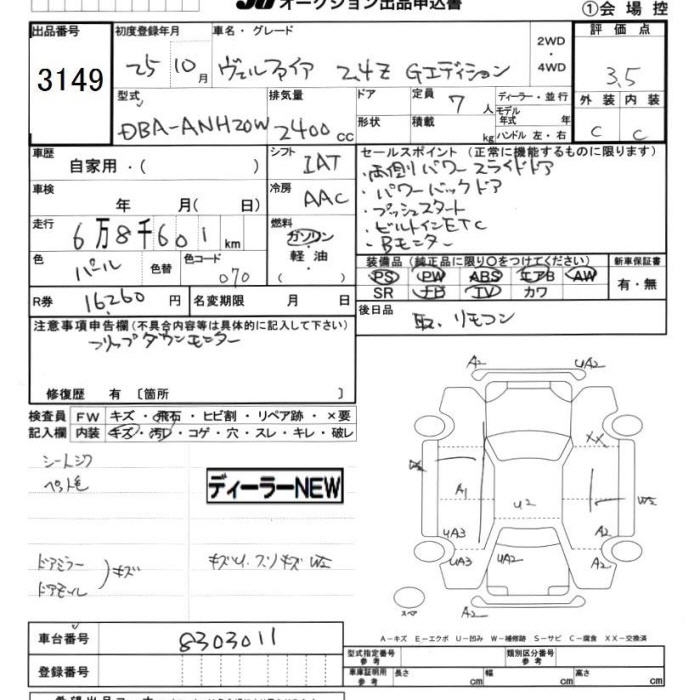 オークション出品申込書
①会場控
出品番号 初度登録年月 車名・グレード 評価点
3149 25 10月 ヴェルファイア 2,4Z Gエディション 2WD・4WD 3.5
型式 排気量 ドア 定員 7人 ディーラー・並行 外装 内装
モデル年式 年式
DBA-ANH20W 2400cc 形状 積載 kg ハンドル 左・右 C C
車歴 シフト セールスポイント (正常に機能するものに限ります)
自家用・( ) IAT ・両側パワースライドドア
車検 冷房 ・パワーバックドア
年 月( 日) AAC ・プッシュスタート
走行 燃料 ・ビルトインETC
6万8千601km ガソリン・軽油・( ) ・Bモニター
色 色替 色コード 装備品 (純正品に限り〇をつけてください) 新車保証書
パール 070 PS PW ABS エアB AW 有・無
SR ナビ TV カワ
R券 16,260円 名変期限 月 日 後日品 取、リモコン
注意事項申告欄 (不具合内容等は具体的に記入して下さい)
フリップダウンモニター
修復歴 有 〔箇所 〕
検査員 FW キズ・飛石・ヒビ割・リペア跡・×要
記入欄 内装 キズ・汚レ・コゲ・穴・スレ・キレ・破レ
シートシワ
ペット毛
ディーラーNEW
ドアミラー
ドアモール キズ
A2 UA2
XX
A1 U2 W2
UA3 A2
UA3 UA2 A2
スペア A2
A-キズ E-エクボ U-凹み W-補修跡 S-サビ C-腐食 XX-交換済
車台番号 8303011
型式指定番号 参考 類別区分番号 参考
登録番号 車庫証明用 参考 長さ cm 幅 cm 高さ cm